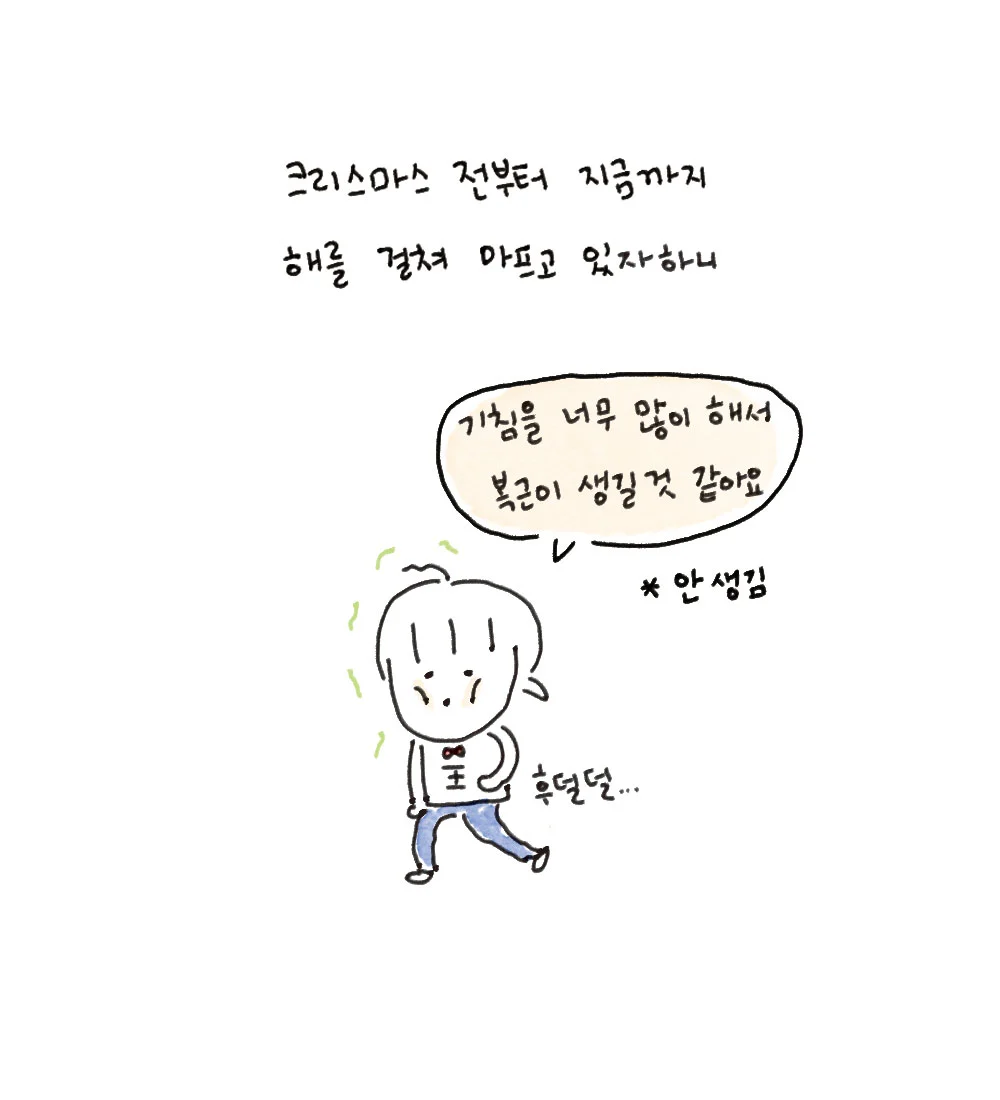 크리스마스 전부터 지금까지
해를 걸쳐 아프고 있자하니
기침을 너무 많이 해서
복근이 생길것 같아요
* 안 생김
王
후덜덜...